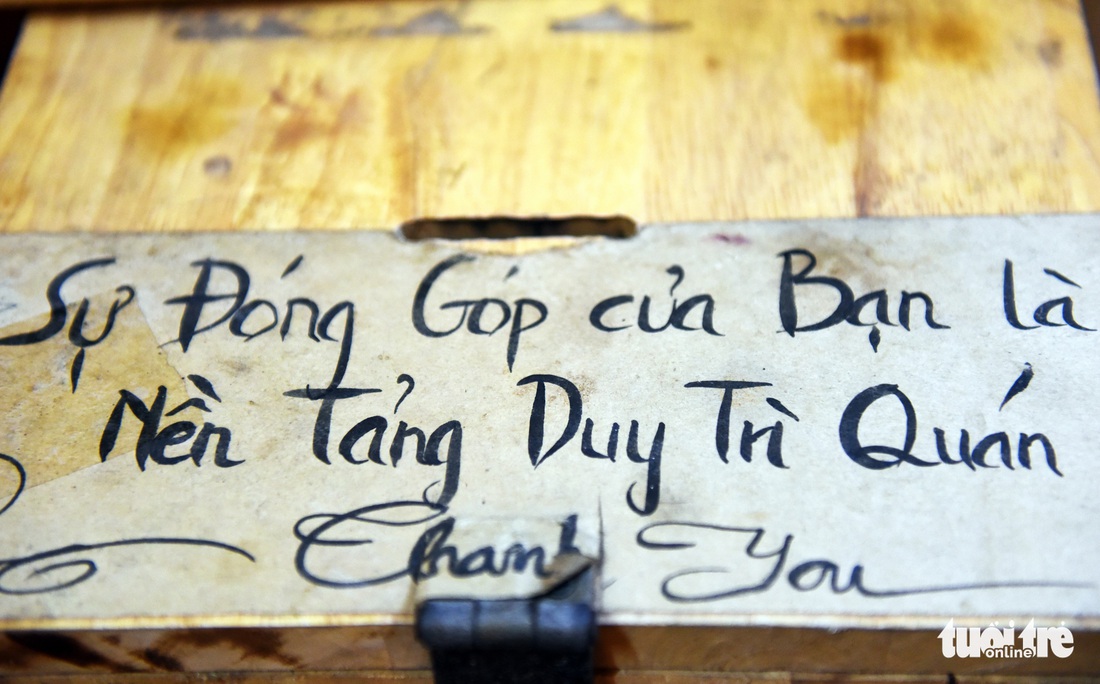 Sự Đóng Góp của Bạn là
Nền Tảng Duy Trì Quán
Thank You
tuổi trẻ
online